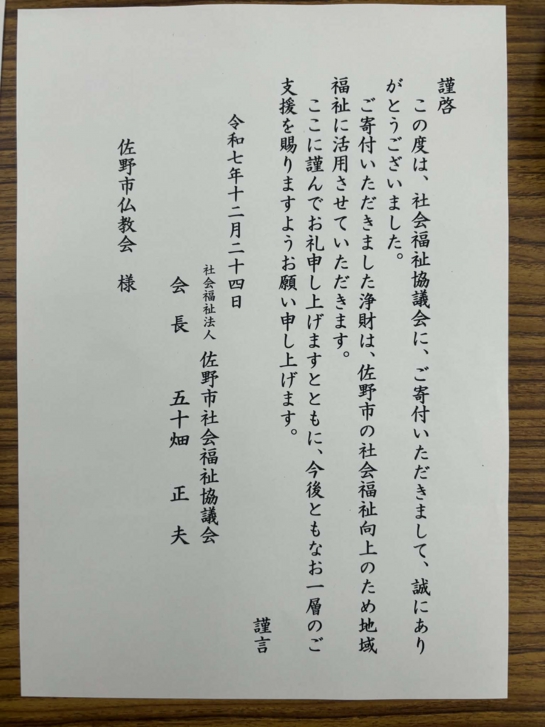 謹啓
この度は、社会福祉協議会に、ご寄付いただきまして、誠にあり
がとうございました。
ご寄付いただきました浄財は、佐野市の社会福祉向上のため地域
福祉に活用させていただきます。
ここに謹んでお礼申し上げますとともに、今後ともなお一層のご
支援を賜りますようお願い申し上げます。
謹言
令和七年十二月二十四日
社会福祉法人 佐野市社会福祉協議会
会長 五十畑 正夫
佐野市仏教会 様